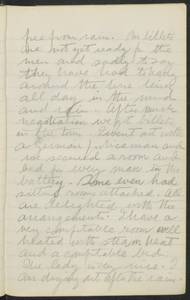 free from rain. The billets
are not yet ready for the
men and sadly to say
they have had to hang
around the line
all day in the mud
and rain. After much
negotiation we got billets
in the town. I went out with
a German policeman and
we secured a room and
bed for every man in the
battery. Some even had
sitting rooms attached. All
are delighted with the
arrangements. I have a
very comfortable room well
heated with steam heat
and a comfortable bed.
The lady is very nice. I
am drying out after the rain.